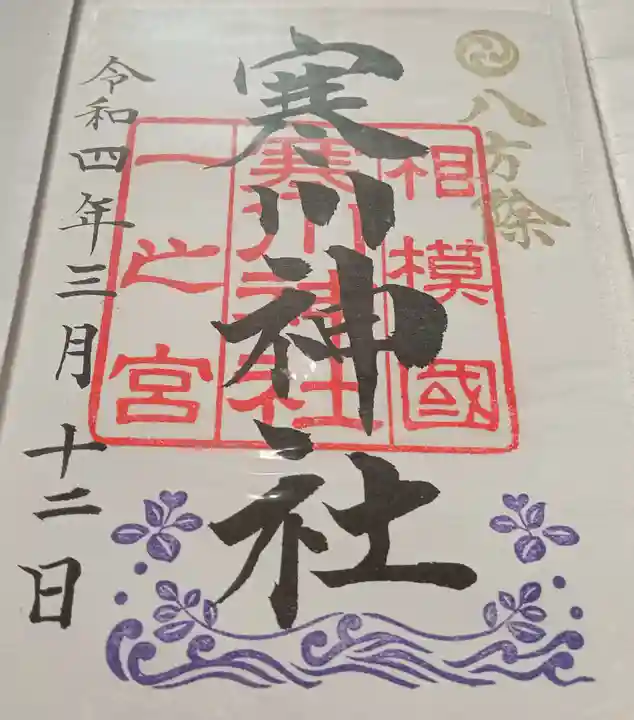 八方除
相模國
寒川神社
一之宮
寒川神社
令和四年三月十二日